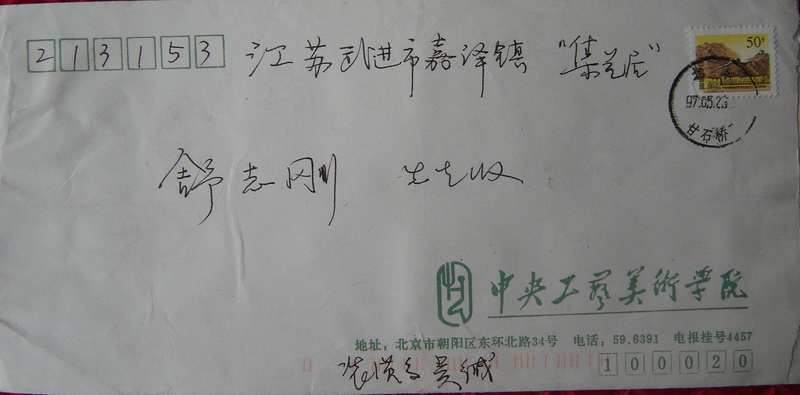 213153 江苏武进市嘉泽镇 "集艺居"
50分
97.05.23
甘石桥
舒志刚 先生收
中央工艺美术学院
地址：北京市朝阳区东环北路34号 电话：59.6391 电报挂号4457
装潢系 100020